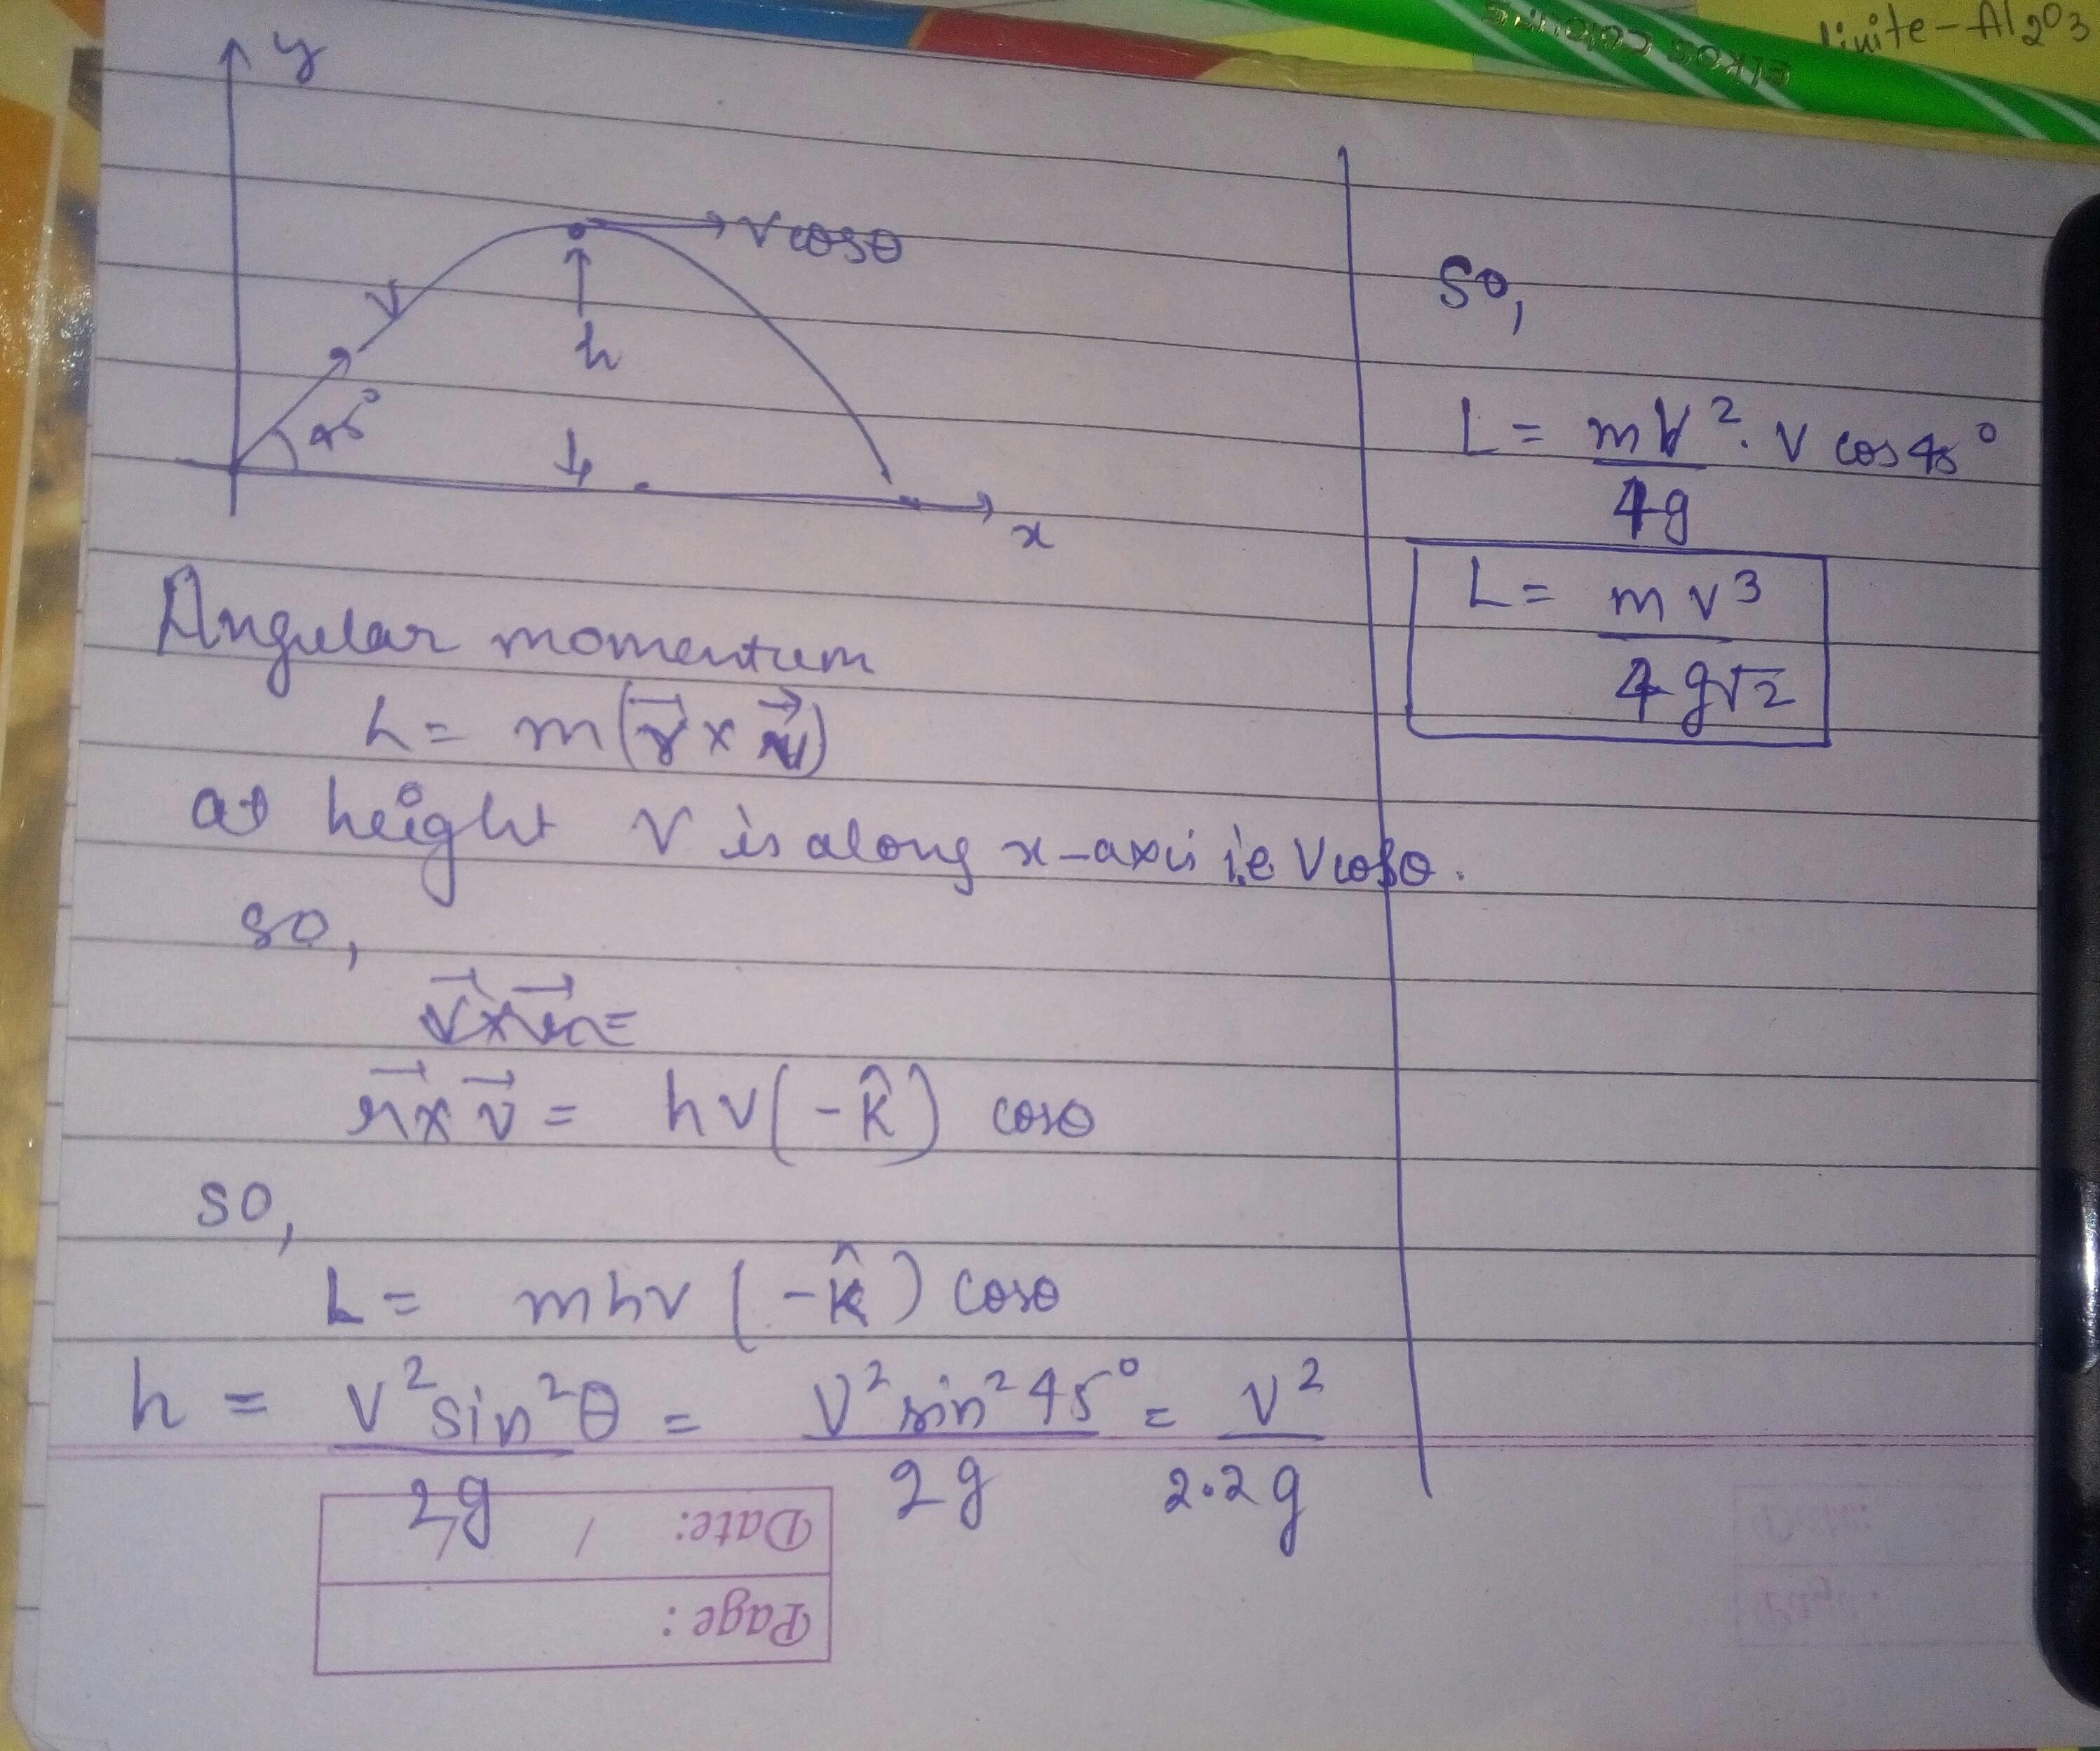 linite - Al2O3
ELKOS
y
v cosθ
v
h
45°
x
Angular momentum
L = m(r⃗ × v⃗)
at height v is along x-axis i.e vcosθ.
so,
v⃗ × r⃗ =
r⃗ × v⃗ = hv(-k̂) cosθ
so,
L = mhv (-k̂) cosθ
h = v²sin²θ/2g = v²sin²45°/2g = v²/2.2g
Date: / /
Page:
So,
L = mv²/4g . v cos45°
L = mv³/4g√2